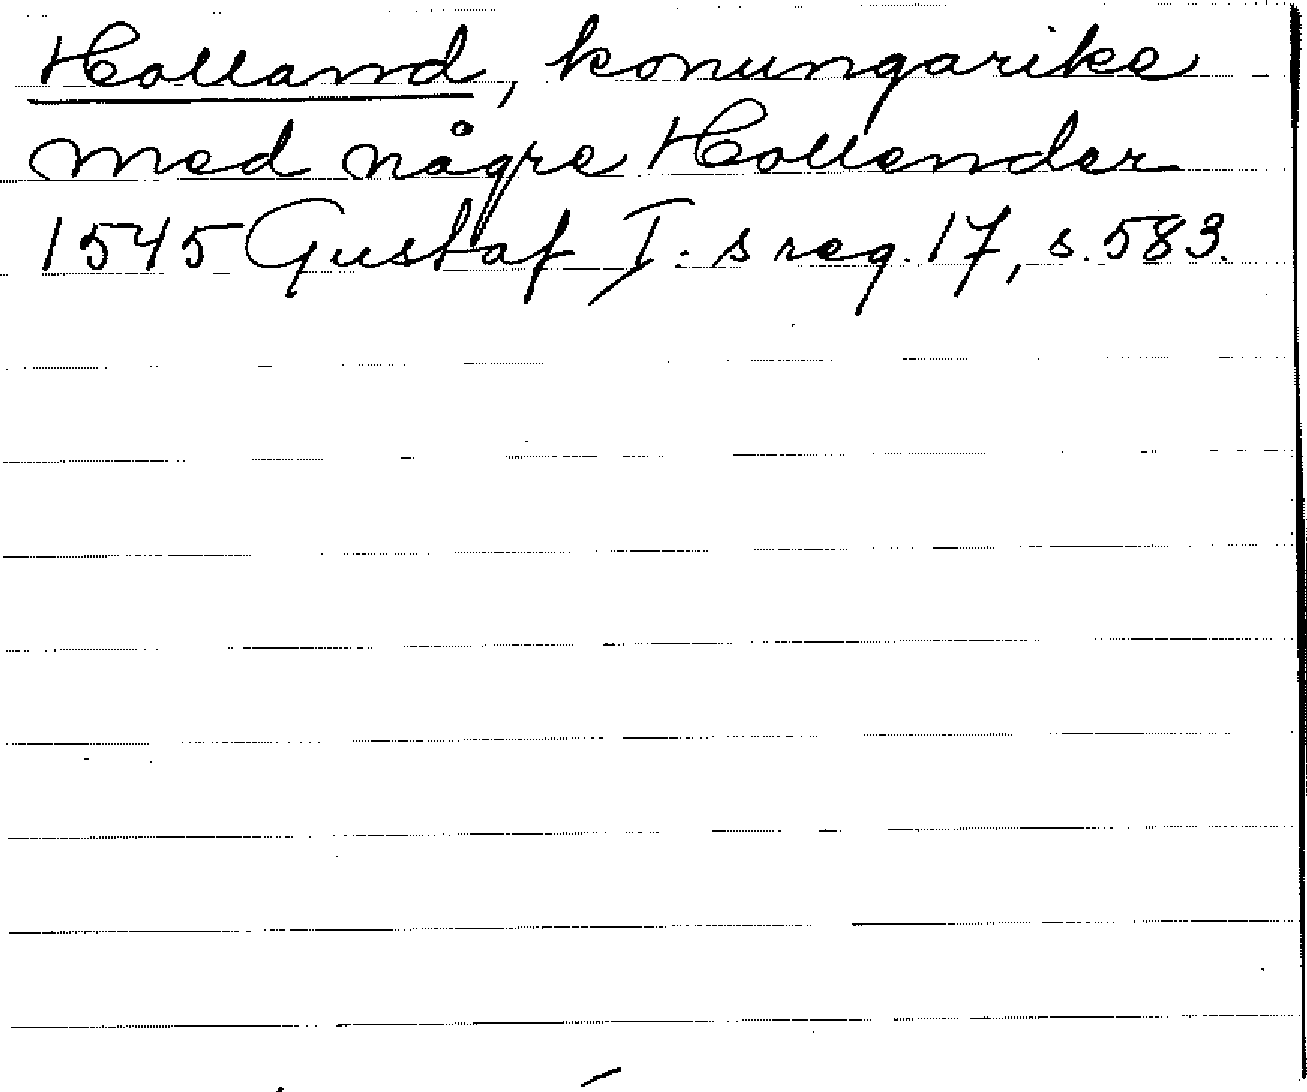 Holland, konungarike
med någre Hollender
1545 Gustaf I:s reg. 17, s. 583.